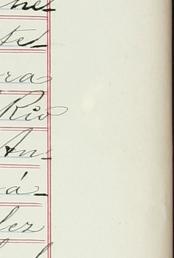 ne-
te-
ra
Rio
An-
á-
lez